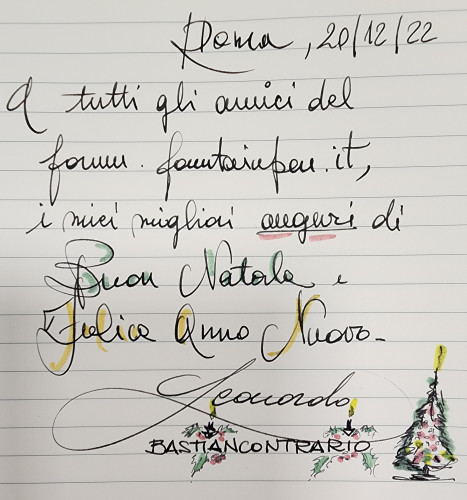 Roma, 20/12/22
A tutti gli amici del
forum.fountainpen.it,
i miei migliori auguri di
Buon Natale e
Felice Anno Nuovo.
Leonardo
BASTIANCONTRARIO